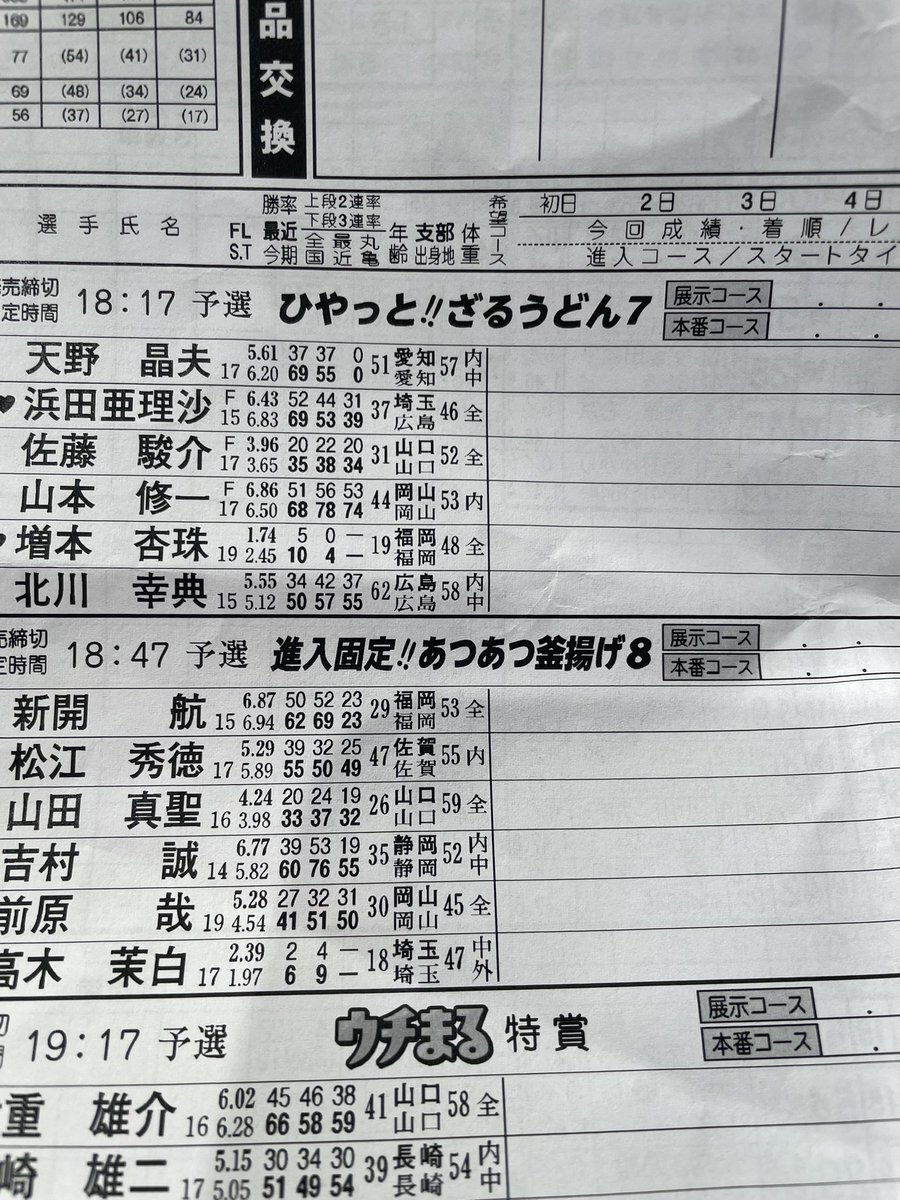 169 129 106 84
77 (54) (41) (31)
69 (48) (34) (24)
56 (37) (27) (17)
品交換
選手氏名 FL S.T 勝率 最近 今期 上段2連率 下段3連率 全国 最近 丸亀 年齢 支部 出身地 体重 希望コース 初日 2日 3日 4日
今回成績・着順/レ
進入コース/スタートタイ
売締切
定時間 18:17 予選 ひやっと!!ざるうどん7 展示コース
本番コース
天野 晶夫 5.61 37 37 0 51 愛知 57 内
17 6.20 69 55 0 愛知 中
浜田亜理沙 F 6.43 52 44 31 37 埼玉 46 全
15 6.83 69 53 39 広島
佐藤 駿介 F 3.96 20 22 20 31 山口 52 全
17 3.65 35 38 34 山口
山本 修一 F 6.86 51 56 53 44 岡山 53 内
17 6.50 68 78 74 岡山
増本 杏珠 1.74 5 0 — 19 福岡 48 全
19 2.45 10 4 — 福岡
北川 幸典 5.55 34 42 37 62 広島 58 内
15 5.12 50 57 55 広島 中
売締切
定時間 18:47 予選 進入固定!!あつあつ釜揚げ8 展示コース
本番コース
新開 航 6.87 50 52 23 29 福岡 53 全
15 6.94 62 69 23 福岡
松江 秀徳 5.29 39 32 25 47 佐賀 55 内
17 5.89 55 50 49 佐賀
山田 真聖 4.24 20 24 19 26 山口 59 全
16 3.98 33 37 32 山口
吉村 誠 6.77 39 53 19 35 静岡 52 内
14 5.82 60 76 55 静岡 中
前原 哉 5.28 27 32 31 30 岡山 45 全
19 4.54 41 51 50 岡山
高木 茉白 2.39 2 4 — 18 埼玉 47 中
17 1.97 6 9 — 埼玉 外
19:17 予選 ウチまる特賞 展示コース
本番コース
重 雄介 6.02 45 46 38 41 山口 58 全
16 6.28 66 58 59 山口
崎 雄二 5.15 30 34 30 39 長崎 54 内
17 5.05 51 49 54 長崎 中